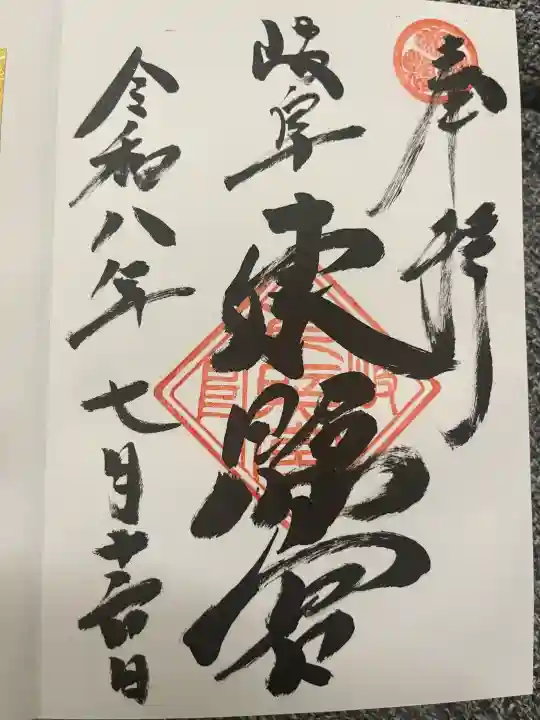 奉拝
岐阜
東照宮
令和八年七月十六日